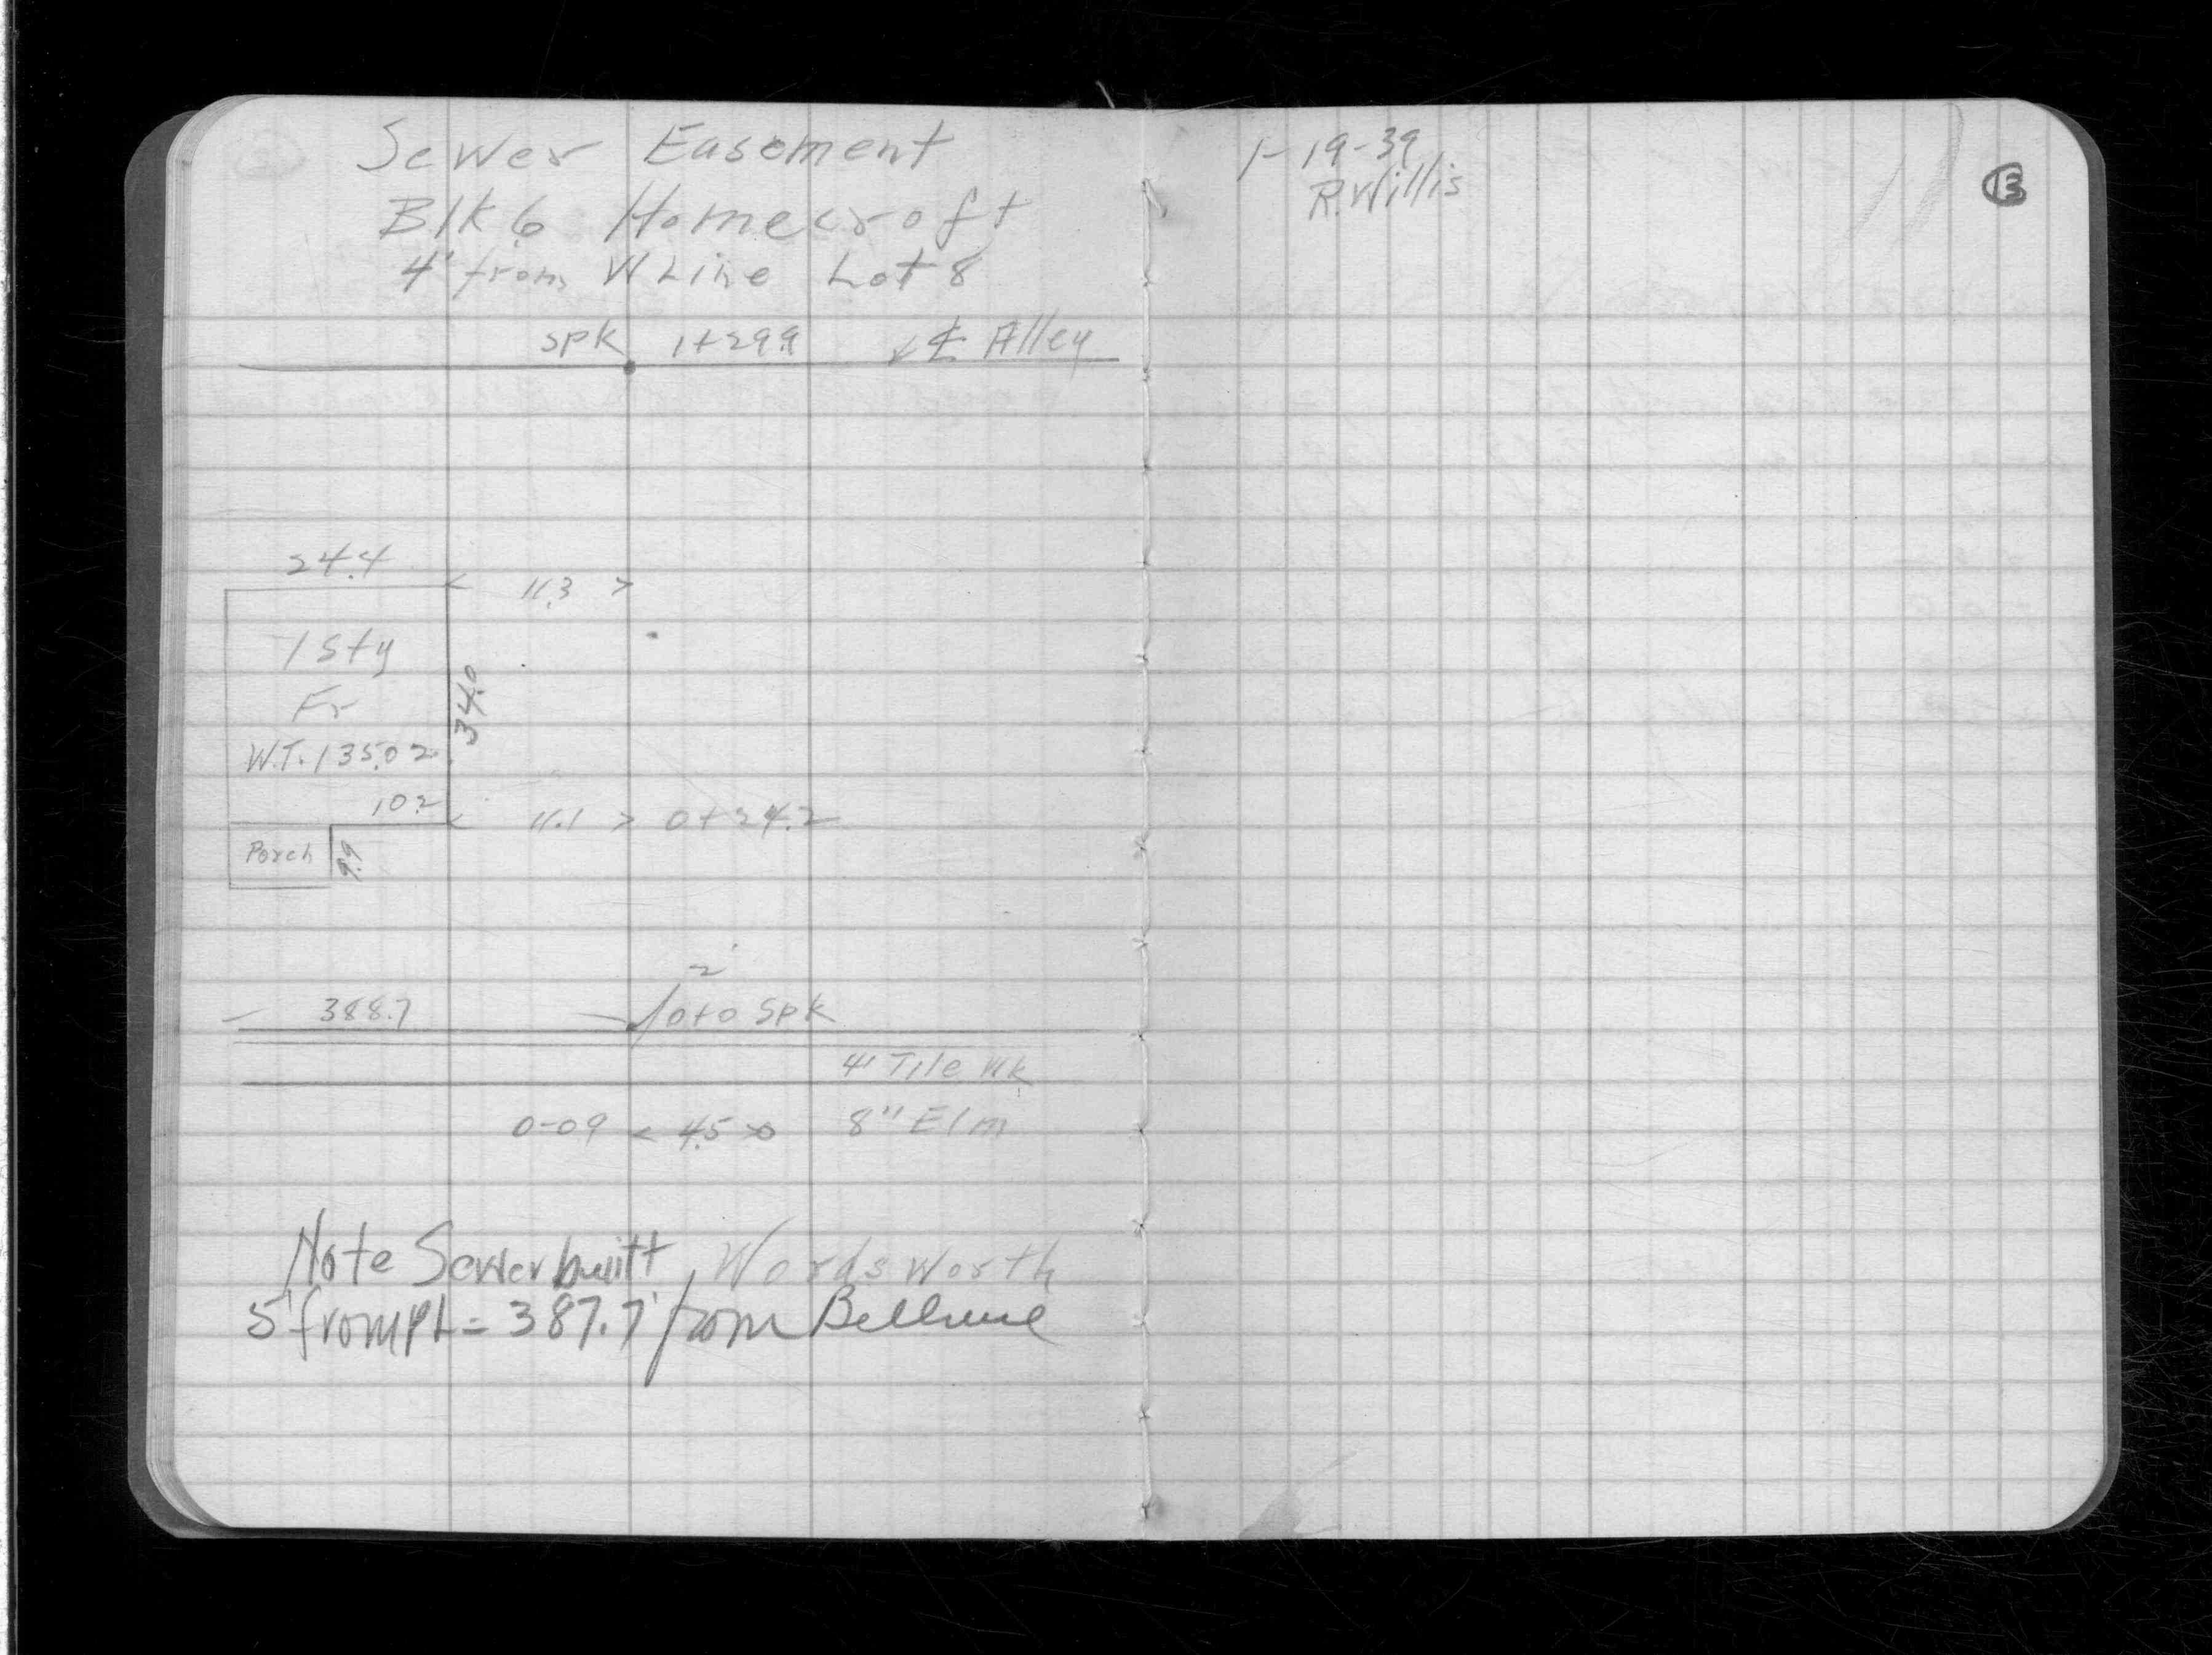 Sewer Easement
Blk 6 Homecroft
4' from W Line Lot 8
spk 1+29.9 ℄ Alley
24.4
11.3
1 Sty
Fr
34.0
W.T. 135.02
10.2
11.1 0+24.2
Porch
9.9
2'
388.7 0+0 Spk
4' Tile Wk
0-09 4.5 8" Elm
Wordsworth
Note Sewer built
5' from PL = 387.7' from Bellvue
1-19-39
R. Willis
13